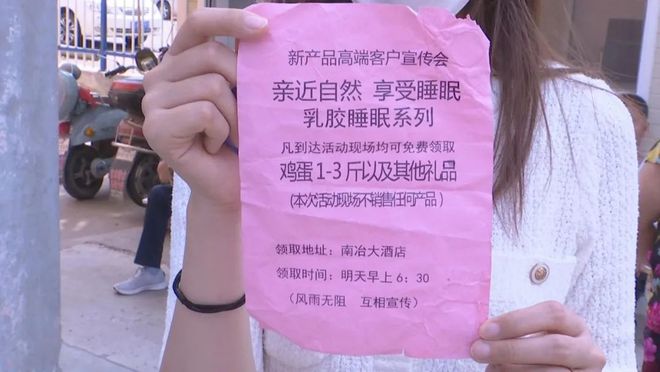 新产品高端客户宣传会
亲近自然 享受睡眠
乳胶睡眠系列
凡到达活动现场均可免费领取
鸡蛋 1-3 斤以及其他礼品
(本次活动现场不销售任何产品)
领取地址：南冶大酒店
领取时间：明天早上 6：30
（风雨无阻 互相宣传）